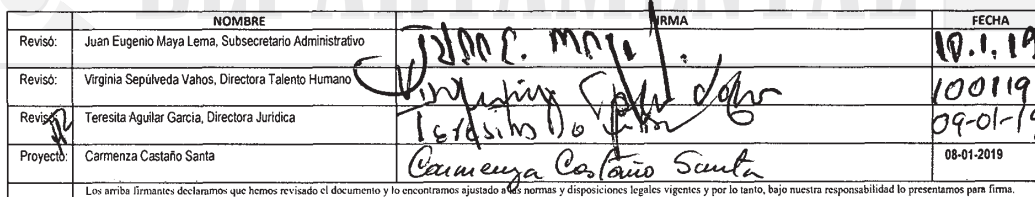 NOMBRE FIRMA FECHA
Revisó: Juan Eugenio Maya Lema, Subsecretario Administrativo 10.1.19
Revisó: Virginia Sepúlveda Vahos, Directora Talento Humano 100119
Revisó: Teresita Aguilar Garcia, Directora Jurídica 09-01-19
Proyectó: Carmenza Castaño Santa Carmenza Castaño Santa 08-01-2019
Los arriba firmantes declaramos que hemos revisado el documento y lo encontramos ajustado a las normas y disposiciones legales vigentes y por lo tanto, bajo nuestra responsabilidad lo presentamos para firma.